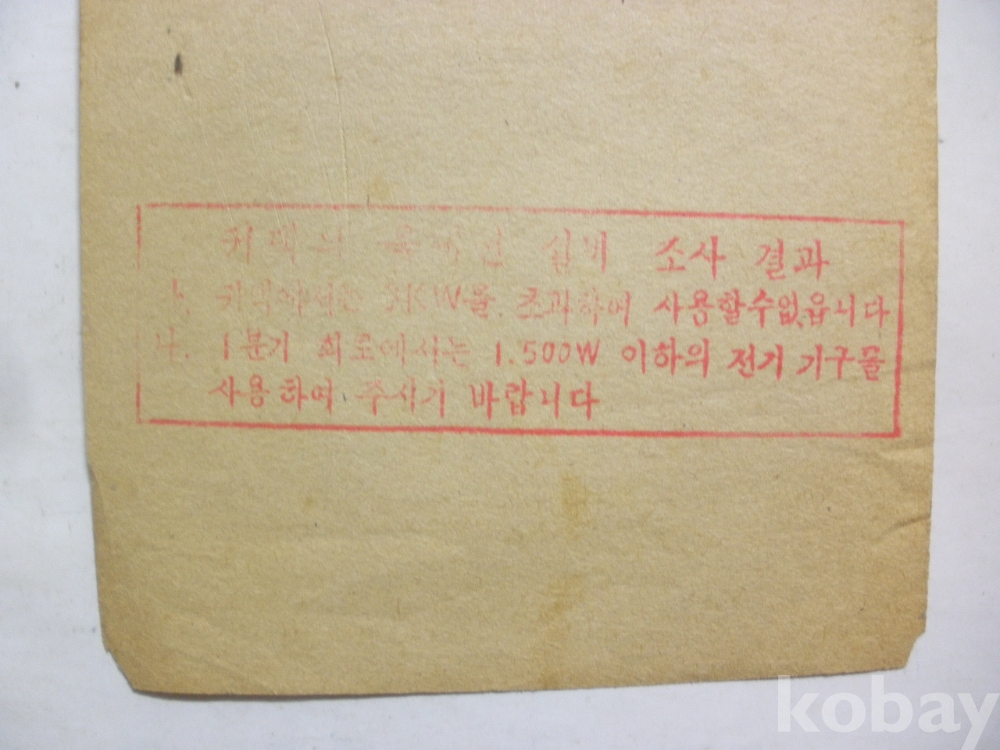 귀댁의 옥내선 실비 조사 결과
가. 귀댁에서는 3KW을 초과하여 사용할수없읍니다
나. 1분기 회로에서는 1.500W 이하의 전기 기구를
사용하여 주시기 바랍니다
kobay